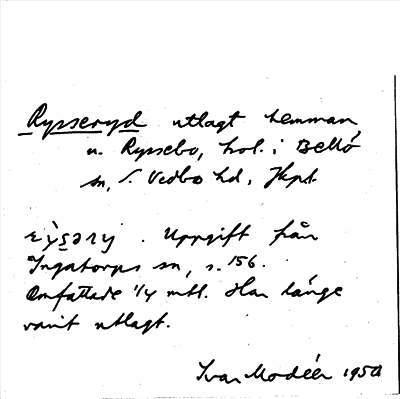 Rysseryd utlagt hemman
u. Ryssebo, hol. i Bellö
sn, S. Vedbo hd, Jkpt
rỳsəry . Uppgift från
Ingatorps sn, s. 156.
Omfattade 1/4 mtl. Har länge
varit utlagt.
Ivar Modéer 1950